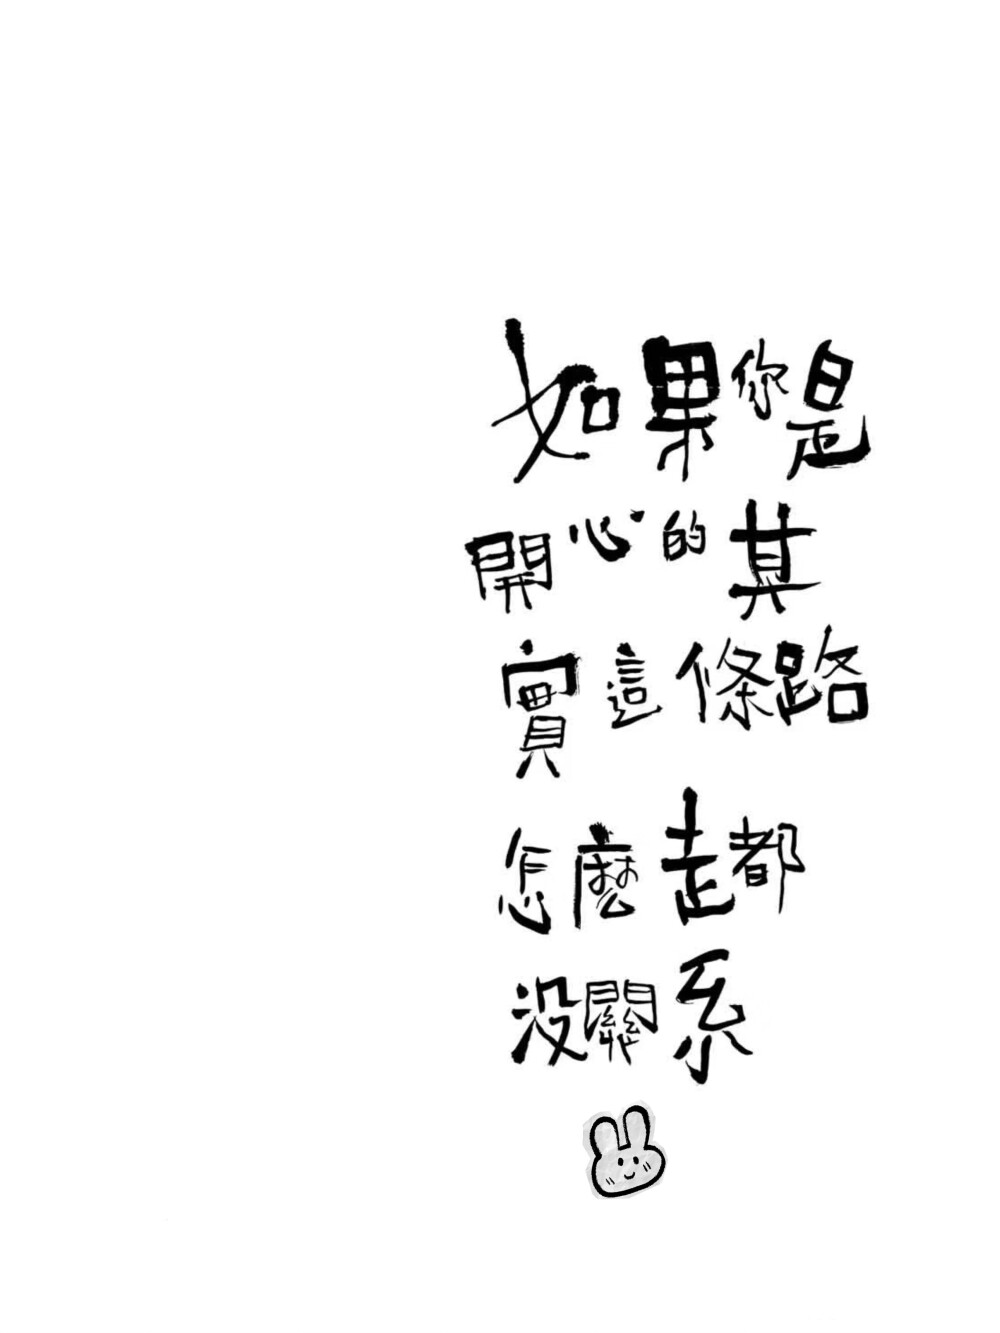 如果你是
開心的其
實這條路
怎麼走都
没關系